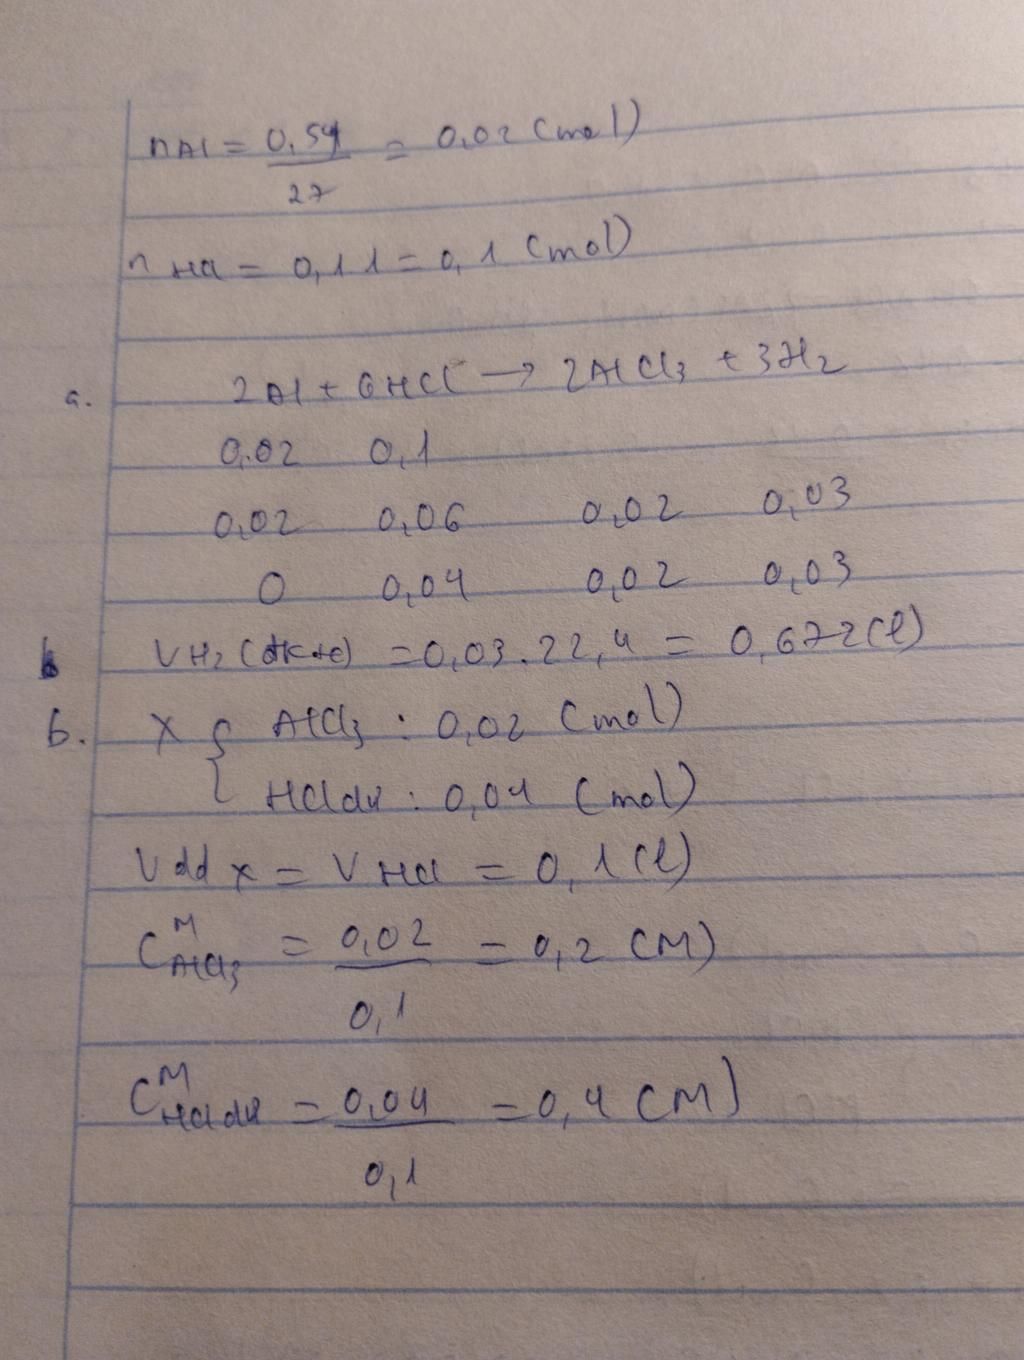 nAl = 0,54 / 27 = 0,02 (mol)
nHCl = 0,1.1 = 0,1 (mol)
a. 2Al + 6HCl → 2AlCl3 + 3H2
0,02 0,1
0,02 0,06 0,02 0,03
0 0,04 0,02 0,03
VH2 (đktc) = 0,03.22,4 = 0,672 (l)
b. X { AlCl3 : 0,02 (mol)
HCl dư : 0,04 (mol)
Vdd x = VHCl = 0,1 (l)
CM AlCl3 = 0,02 / 0,1 = 0,2 (M)
CM HCl dư = 0,04 / 0,1 = 0,4 (M)